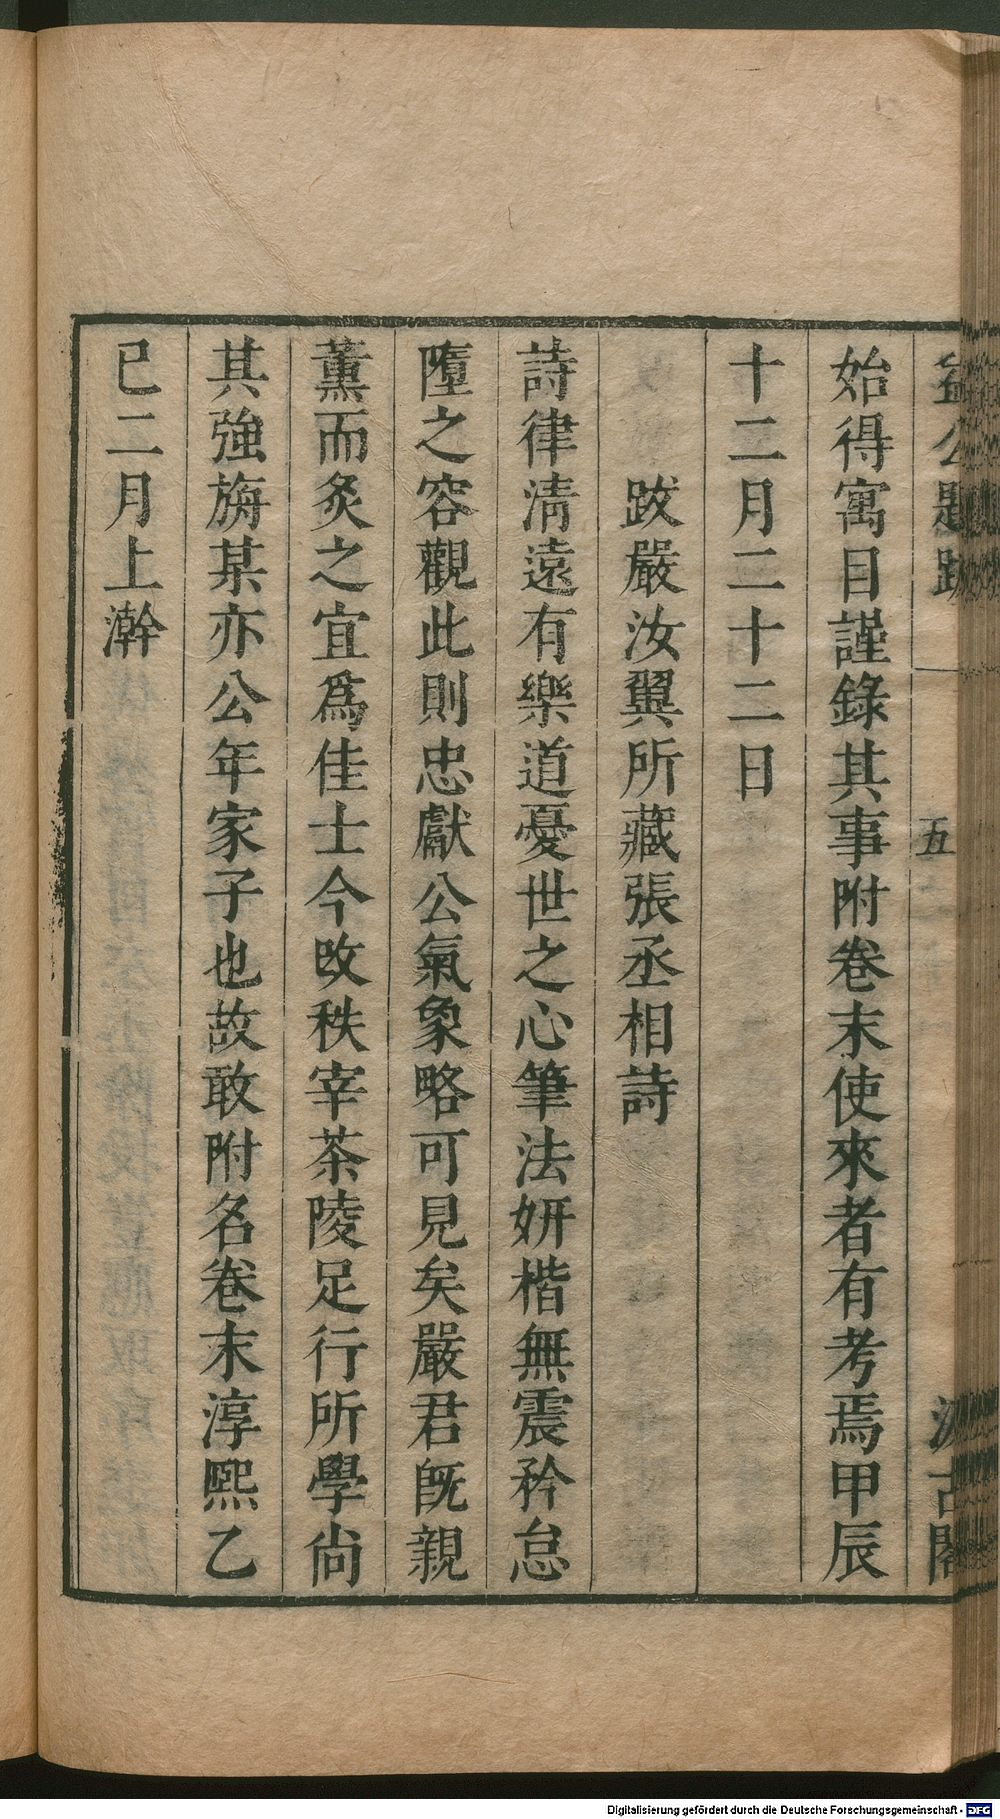 益公題跋
五
汲古閣
始得寓目謹錄其事附卷末使來者有考焉甲辰
十二月二十二日
跋嚴汝翼所藏張丞相詩
詩律清遠有樂道憂世之心筆法妍楷無震矜怠
墮之容觀此則忠獻公氣象略可見矣嚴君既親
薰而炙之宜爲佳士今改秩宰茶陵足行所學尙
其強旃某亦公年家子也故敢附名卷末淳熙乙
已二月上澣
Digitalisierung gefördert durch die Deutsche Forschungsgemeinschaft - DFG